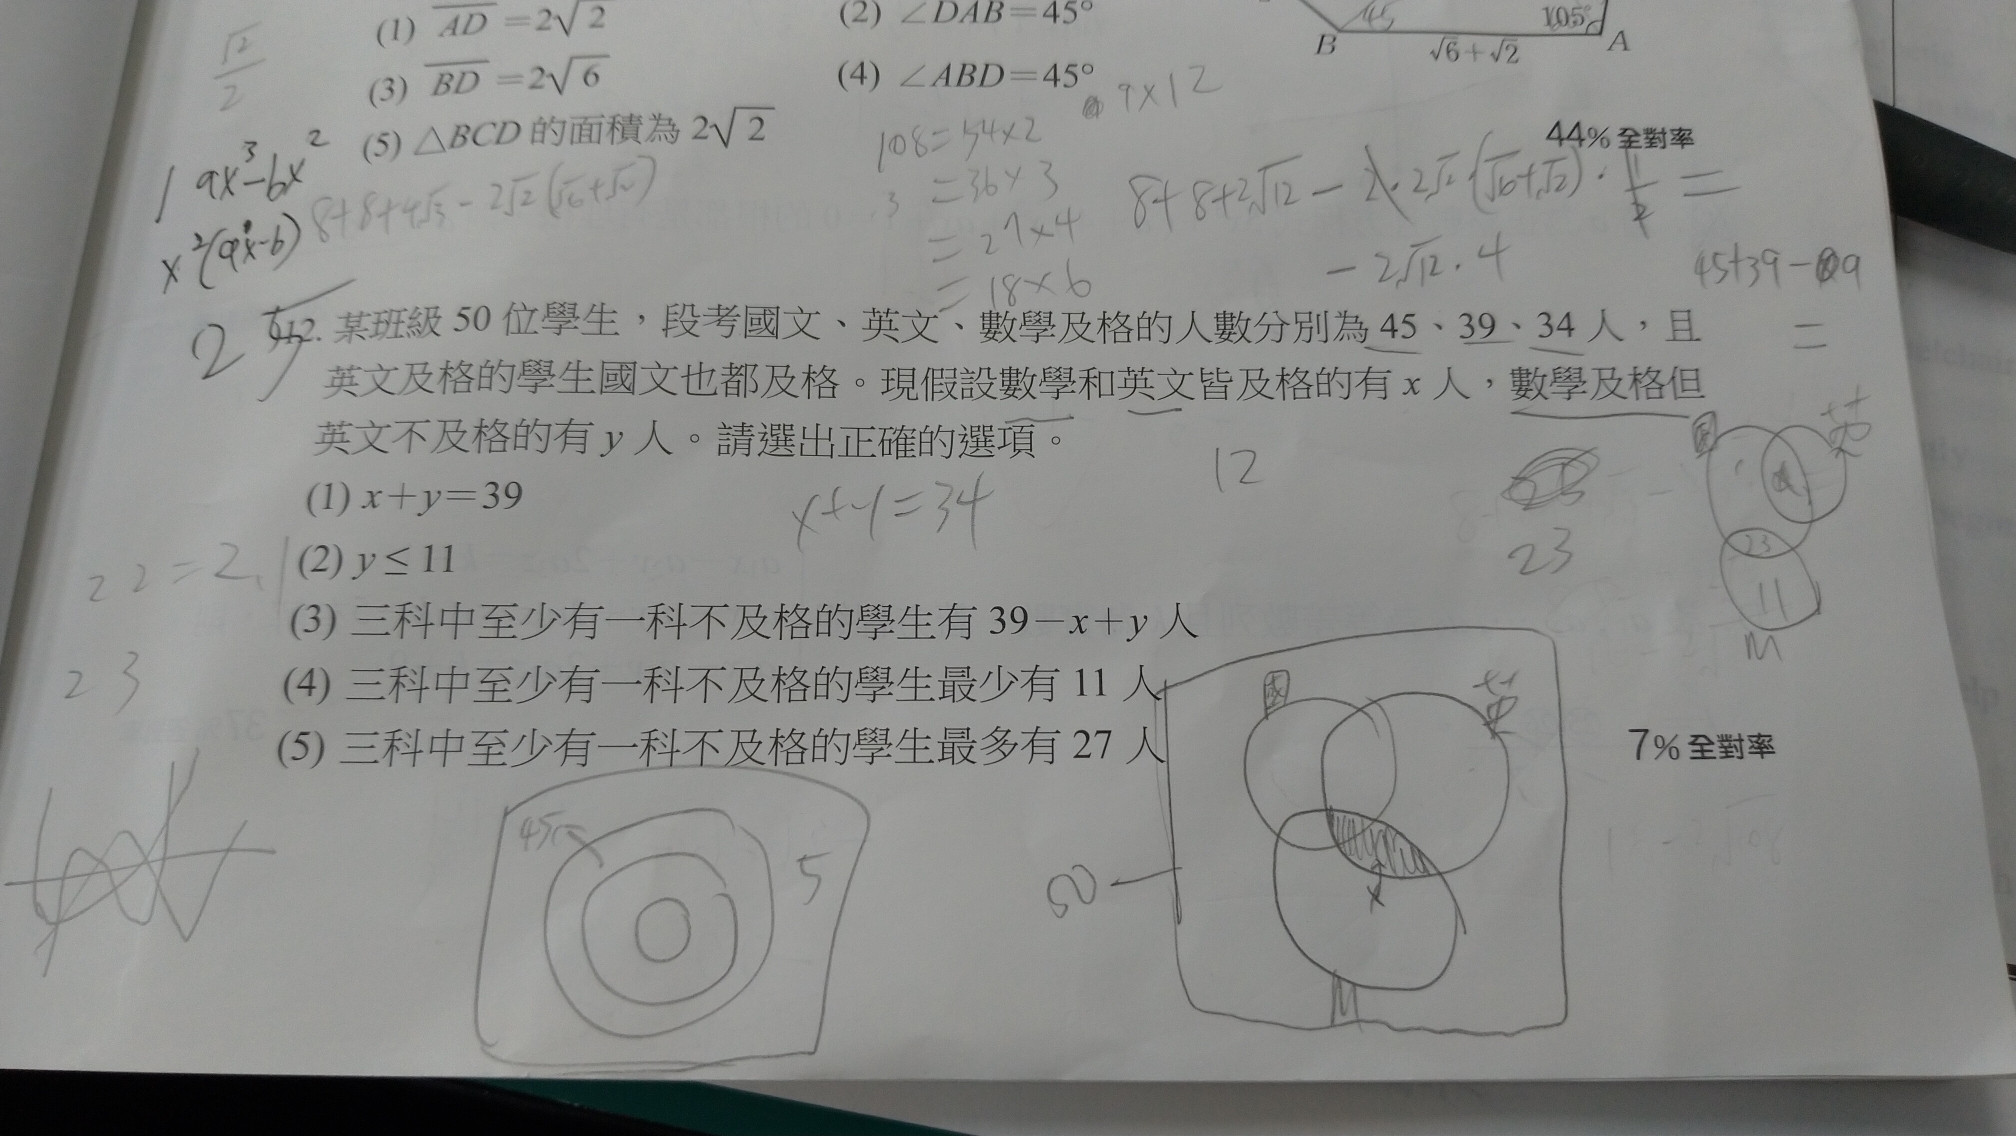 (1) AD=2√2 (2) ∠DAB=45°
45 105°
B √6+√2 A
(3) BD=2√6 (4) ∠ABD=45°
√2/2
9×12
(5) △BCD 的面積為 2√2
44% 全對率
108=54×2
9x³-6x²
=36×3
8+8+4√3-2√2(√6+√2)
8+8+2√12-2·2√2(√6+√2)·
3
=27×4
x²(9x-6)
-2√12·4
=18×6
45+39-
=
2
12. 某班級 50 位學生,段考國文、英文、數學及格的人數分別為 45、39、34 人,且
英文及格的學生國文也都及格。現假設數學和英文皆及格的有 x 人,數學及格但
英文不及格的有 y 人。請選出正確的選項。
國 英
12
23
23
11
M
(1) x+y=39
x+y=34
(2) y≤11
22=2
(3) 三科中至少有一科不及格的學生有 39-x+y 人
23
(4) 三科中至少有一科不及格的學生最少有 11 人
(5) 三科中至少有一科不及格的學生最多有 27 人
7% 全對率
國 英
45
5
50
x
M